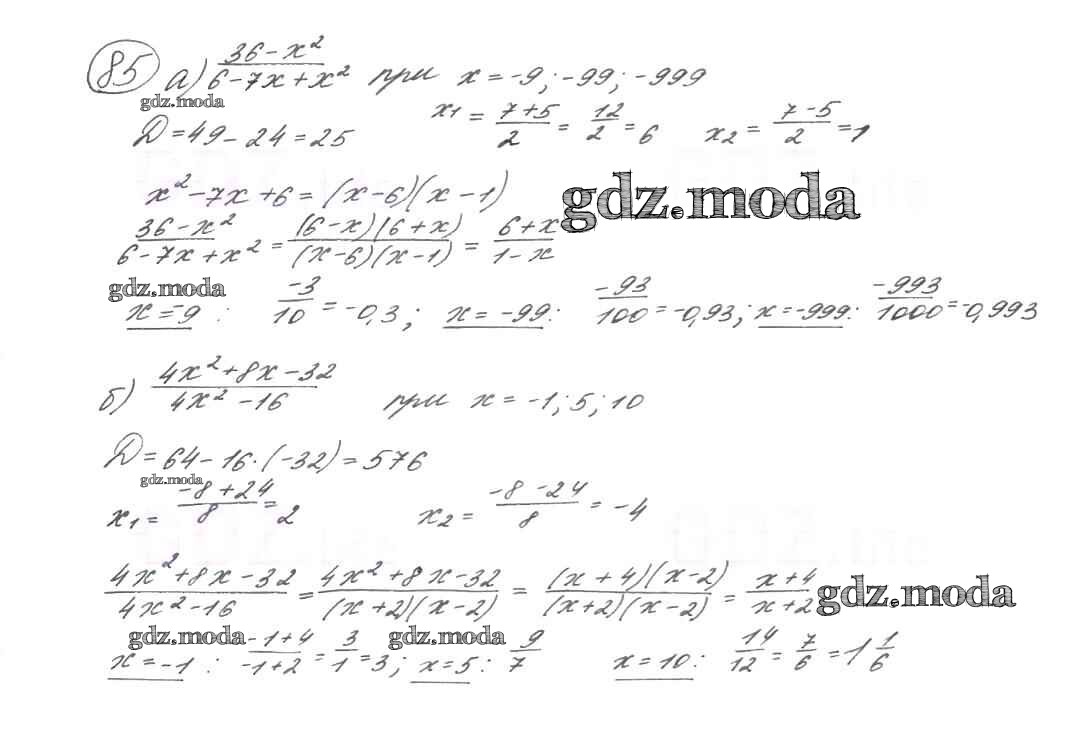 85 а) (36 - x²)/(6 - 7x + x²) при x = -9; -99; -999
gdz.moda
D = 49 - 24 = 25 x₁ = (7+5)/2 = 12/2 = 6 x₂ = (7-5)/2 = 1
x² - 7x + 6 = (x - 6)(x - 1)
gdz.moda
(36 - x²)/(6 - 7x + x²) = ((6 - x)(6 + x))/((x - 6)(x - 1)) = (6 + x)/(1 - x)
gdz.moda
x = -9 : -3/10 = -0,3; x = -99: -93/100 = -0,93; x = -999: -993/1000 = -0,993
б) (4x² + 8x - 32)/(4x² - 16) при x = -1; 5; 10
D = 64 - 16·(-32) = 576
gdz.moda
x₁ = (-8 + 24)/8 = 2 x₂ = (-8 - 24)/8 = -4
(4x² + 8x - 32)/(4x² - 16) = (4x² + 8x - 32)/((x + 2)(x - 2)) = ((x + 4)(x - 2))/((x + 2)(x - 2)) = (x + 4)/(x + 2) gdz.moda
gdz.moda gdz.moda
x = -1 : (-1 + 4)/(-1 + 2) = 3/1 = 3; x = 5 : 9/7 x = 10: 14/12 = 7/6 = 1 1/6